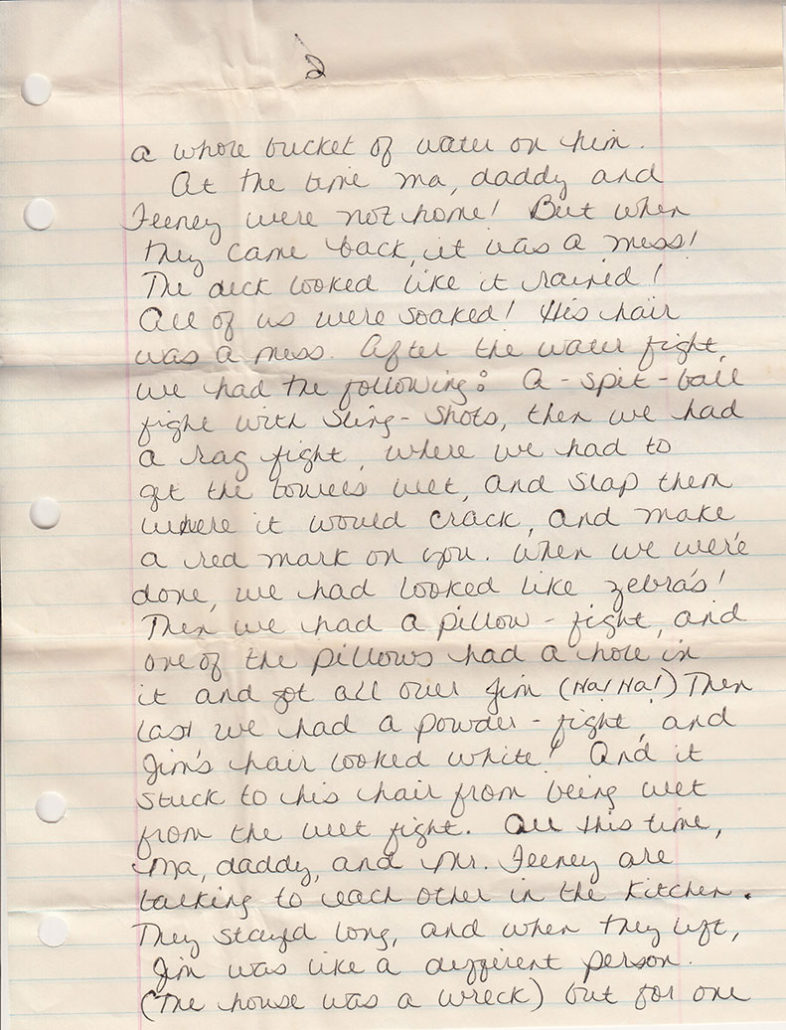 2
a whole bucket of water on him.
At the time ma, daddy and
Feeney were not home! But when
they came back, it was a mess!
The deck looked like it rained!
All of us were soaked! His hair
was a mess. After the water fight,
we had the following: A - spit - ball
fight with sling - shots, then we had
a rag fight, where we had to
get the towels wet, and slap them
where it would crack, and make
a red mark on you. When we were
done, we had looked like zebra's!
Then we had a pillow - fight, and
one of the pillows had a hole in
it and got all over Jim (Ha! Ha!) Then
last we had a powder - fight, and
Jim's hair looked white! And it
stuck to his hair from being wet
from the wet fight. All this time,
Ma, daddy, and Mr. Feeney are
talking to each other in the kitchen.
They stayd long, and when they left,
Jim was like a different person.
(The house was a wreck) but for one